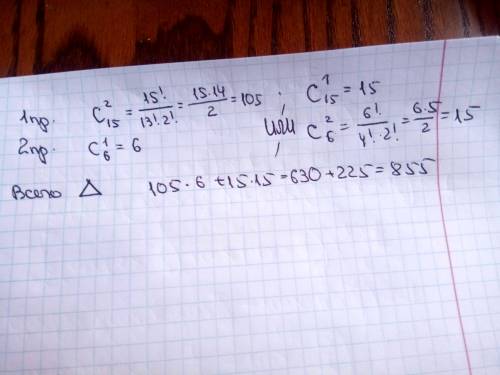 1пр. C₁₅² = 15!/(13!·2!) = 15·14/2 = 105 ; или ; C₁₅¹ = 15
2пр. C₆¹ = 6 C₆² = 6!/(4!·2!) = 6·5/2 = 15
Всего △ 105·6 + 15·15 = 630 + 225 = 855